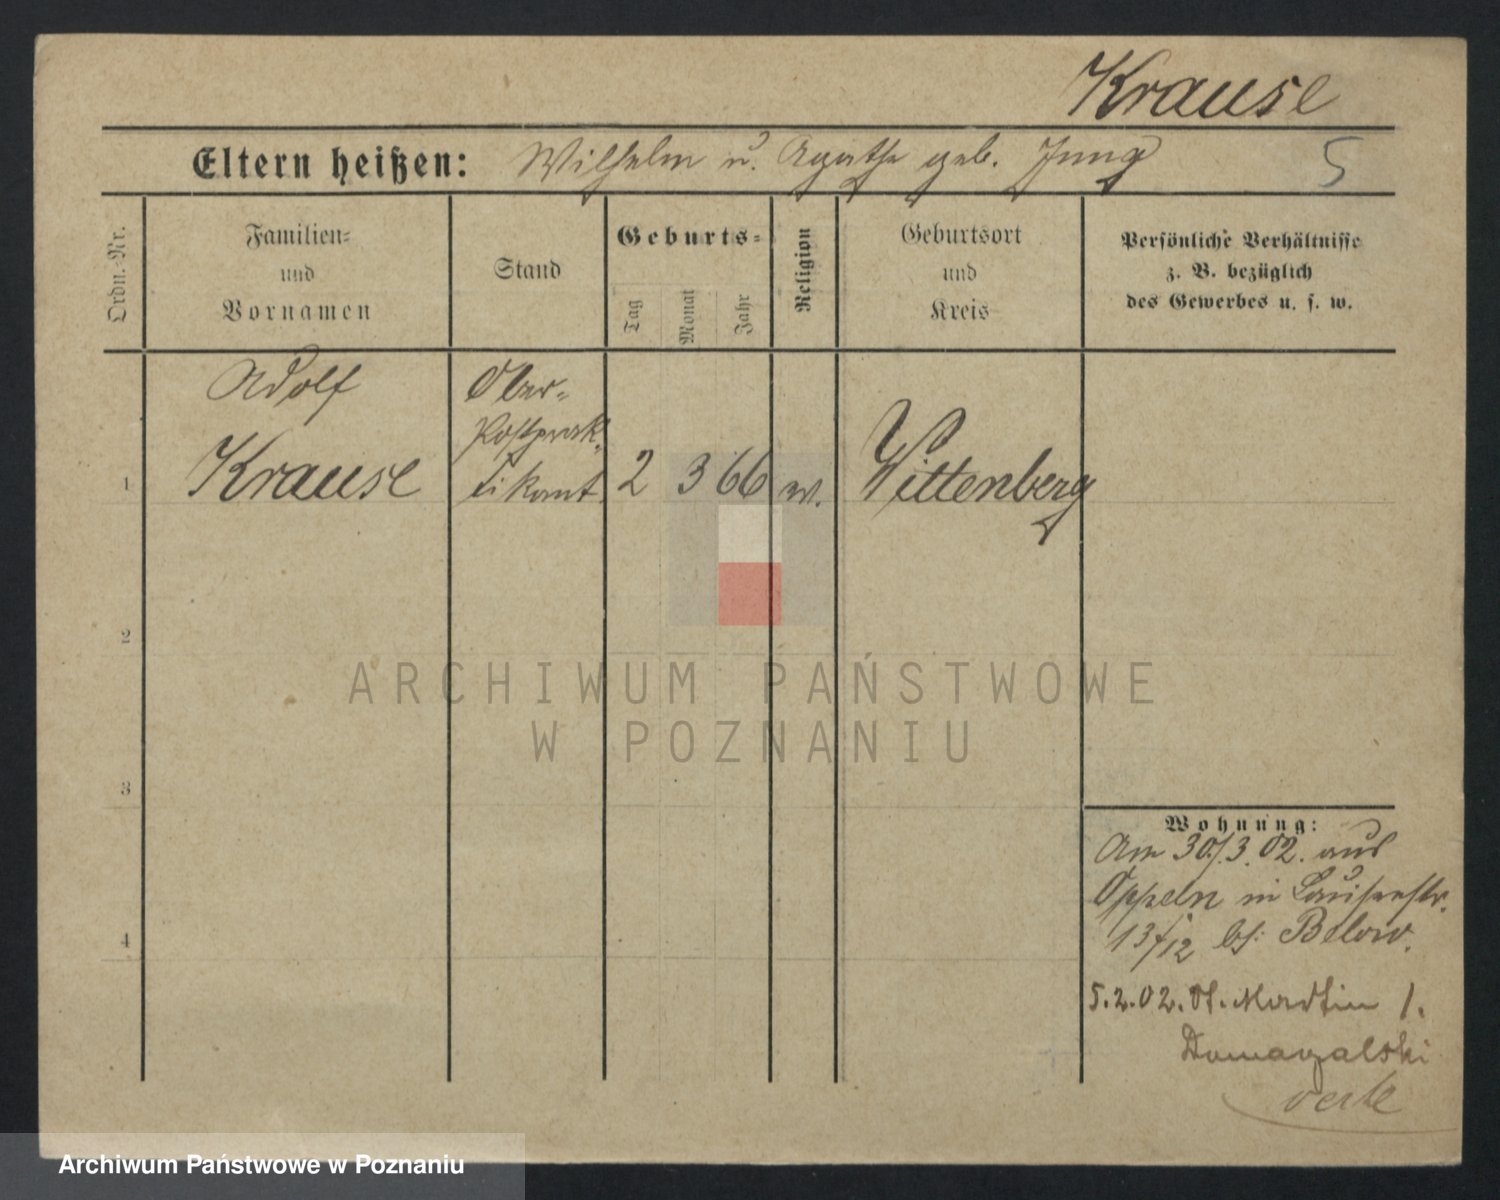 Krause
Eltern heißen: Wilhelm u. Agathe geb. Jung
5
Ordn.-Nr.
Familien-
und
Vornamen
Stand
Geburts-
Tag
Monat
Jahr
Religion
Geburtsort
und
Kreis
Persönliche Verhältnisse
z. B. bezüglich
des Gewerbes u. s. w.
1
Adolf
Krause
Ober-
Postprak-
tikant.
2 3 66
Wittenberg
2
3
4
Wohnung:
Am 30./3. 02. aus
Oppeln in Louisenstr.
13/12 bei Below.
5.2.02. St. Martin 1.
Domagalski
ARCHIWUM PAŃSTWOWE
W POZNANIU
Archiwum Państwowe w Poznaniu